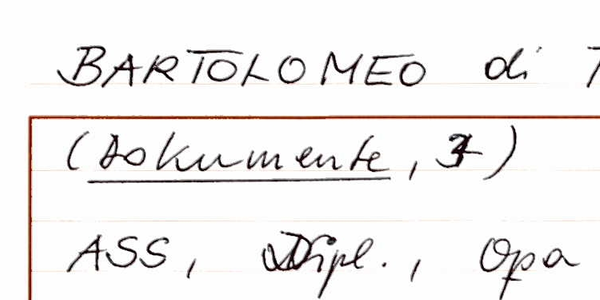 BARTOLOMEO di
(Dokumente, 3)
ASS, Dipl., Opa